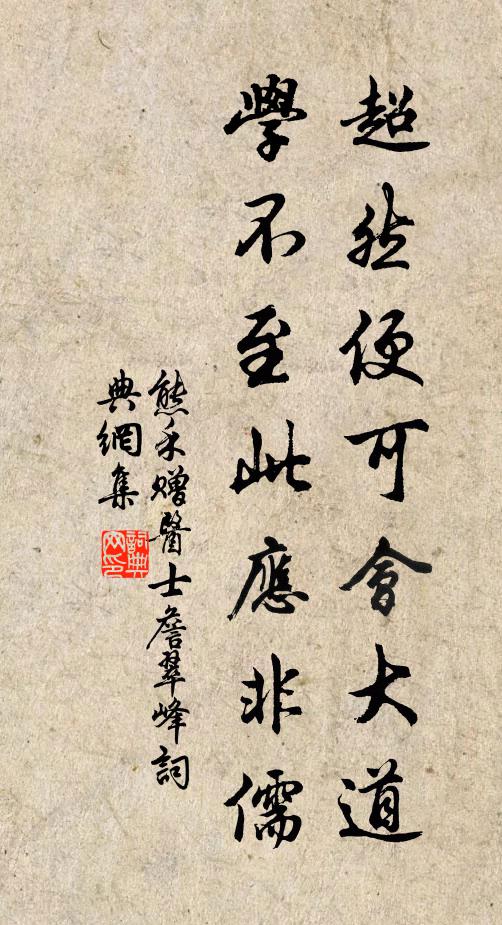 超然便可會大道
學不至此應非儒
熊禾贈醫士詹翠峰詞
典網集
詞典
网印